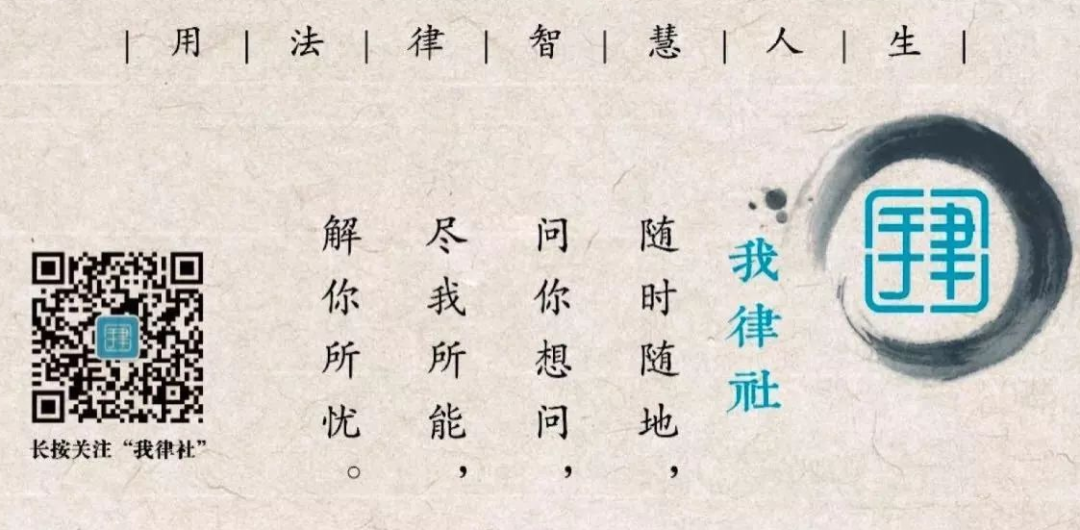 |用|法|律|智|慧|人|生|
我律社
随时随地，
问你想问，
尽我所能，
解你所忧。
长按关注“我律社”